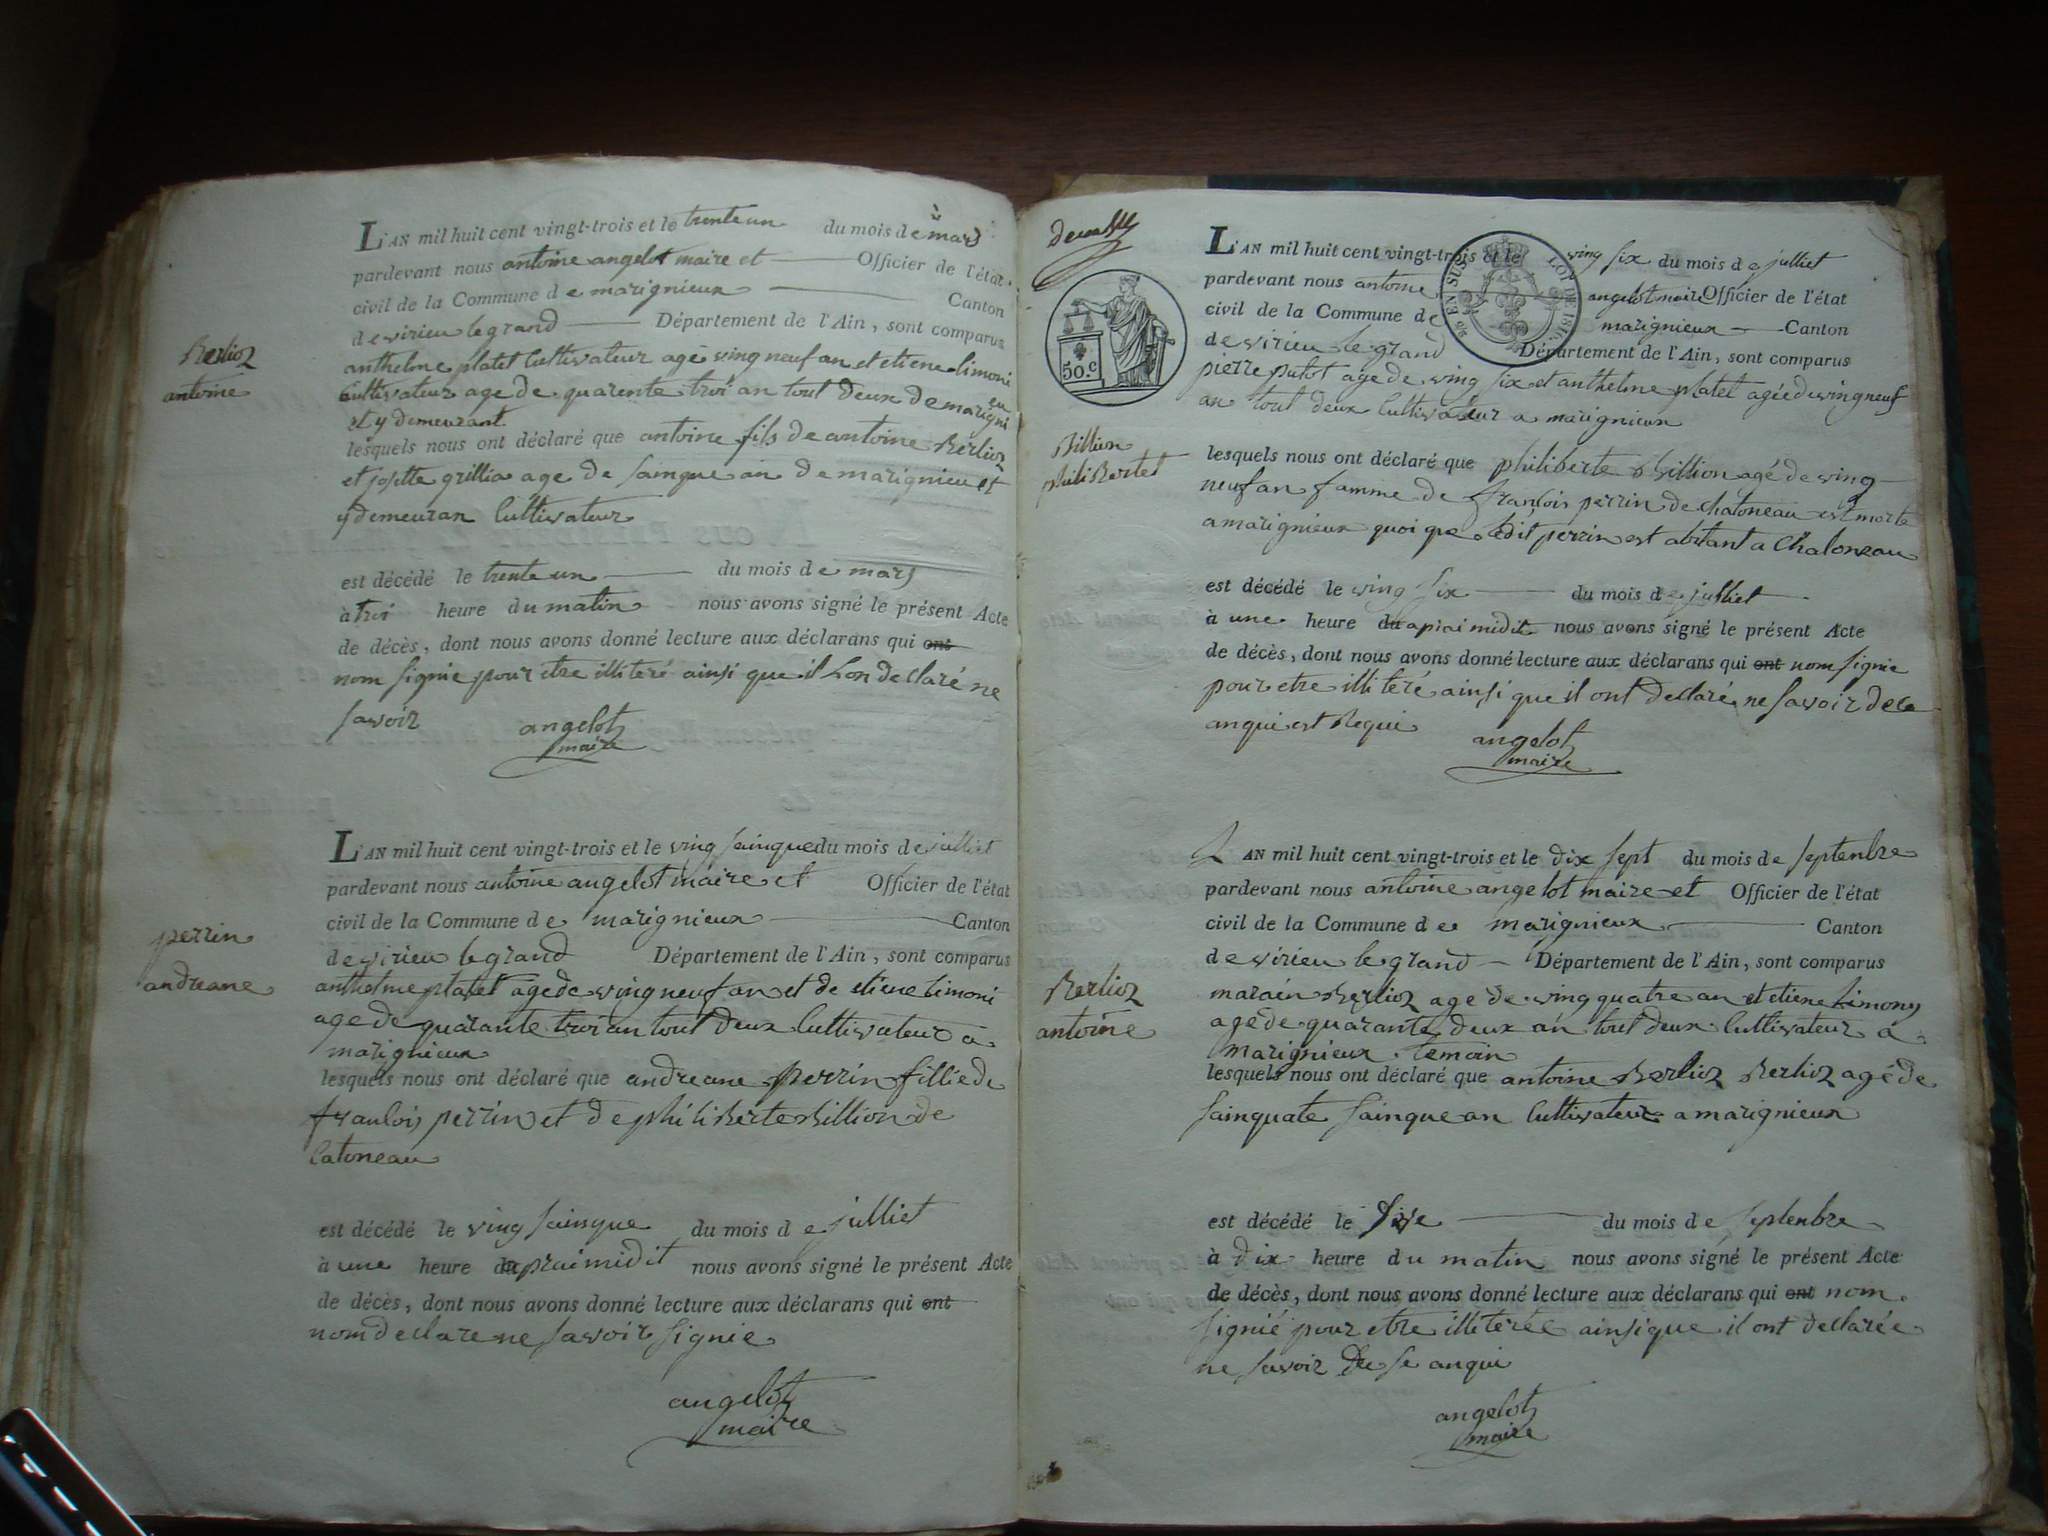 L'AN mil huit cent vingt-trois et le trente un du mois de mars
pardevant nous antoine angelot maire et Officier de l'état
civil de la Commune de marignieux Canton
de virieu legrand Département de l'Ain, sont comparus
anthelme platet Cultivateur agé ving neuf an et etiene limoni
Cultivateur age de quarente troi an tout deux de marigni
eu
et y demeurant
lesquels nous ont déclaré que antoine fils de antoine Berlioz
et josette grillia age de sainque an de marignieu et
y demeuran Cultivateur
est décédé le trente un du mois de mars
à troi heure du matin nous avons signé le présent Acte
de décès, dont nous avons donné lecture aux déclarans qui ont
nom signie pour etre illiteré ainsi que il lon declaré ne
savoir
angelot
maire
Berlioz
antoine
L'AN mil huit cent vingt-trois et le ving sainque du mois de julliet
pardevant nous antoine angelot maire et Officier de l'état
civil de la Commune de marignieux Canton
de virieu legrand Département de l'Ain, sont comparus
anthelme platet age de ving neuf an et de etiene limoni
age de quarante troi an tout deux Cultivateur a
marignieux
lesquels nous ont déclaré que andreane perrin fillie de
francois perrin et de philiberte Billion de
Catoneau
est décédé le ving sainque du mois de julliet
à une heure daprai midit nous avons signé le présent Acte
de décès, dont nous avons donné lecture aux déclarans qui ont
nom declare ne savoir signie
angelot
maire
perrin
andreane
50.c
EN SUS
LOI DE 1816
L'AN mil huit cent vingt-trois et le ving six du mois de julliet
pardevant nous antoine angelot maire Officier de l'état
civil de la Commune de marignieux Canton
de virieu le grand Département de l'Ain, sont comparus
pierre putot age de ving six et anthelme platet agée de ving neuf
an tout deux Cultivateur a marignieux
lesquels nous ont déclaré que philiberte Billion agé de ving
neuf an famme de francois perrin de Chatoneau est morte
a marignieux quoi que ledit perrin est abitant a Chatoneau
est décédé le ving six du mois de julliet
à une heure daprai midit nous avons signé le présent Acte
de décès, dont nous avons donné lecture aux déclarans qui ont nom signie
pour etre illiteré ainsi que il ont declaré ne savoir de ce
anqui est Requi
angelot
maire
Billion
philiBertet
L'AN mil huit cent vingt-trois et le dix sept du mois de septenbre
pardevant nous antoine angelot maire et Officier de l'état
civil de la Commune de marignieux Canton
de virieu le grand Département de l'Ain, sont comparus
Berlioz age de ving quatre an et etiene limony
age de quarante deux an tout deux Cultivateur a
marignieux temoin
lesquels nous ont déclaré que antoine Berlioz Berlioz agé de
sainquate sainque an Cultivateur a marignieux
est décédé le du mois de septenbre
à dix heure du matin nous avons signé le présent Acte
de décès, dont nous avons donné lecture aux déclarans qui ont nom
signié pour etre illiterée ainsi que il ont declarée
ne savoir de se anqui
angelot
maire
Berlioz
antoine